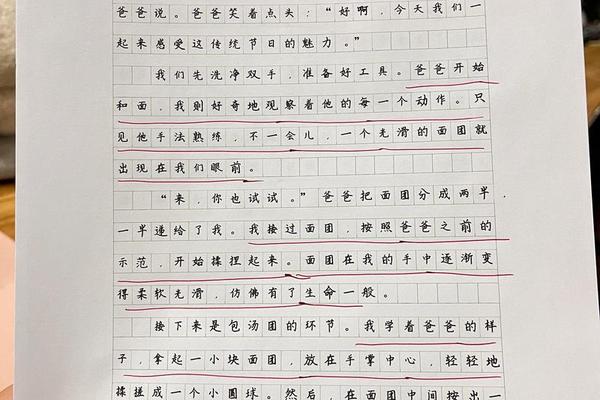 爸爸说。爸爸笑着点头：“好啊，今天我们一
起来感受这传统节日的魅力。”
我们先洗净双手，准备好工具。爸爸开始
和面，我则好奇地观察着他的每一个动作。只
见他手法熟练，不一会儿，一个光滑的面团就
出现在我们眼前。
“来，你也试试。”爸爸把面团分成两半，
一半递给了我。我接过面团，按照爸爸之前的
示范，开始揉捏起来。面团在我的手中逐渐变
得柔软光滑，仿佛有了生命一般。
接下来是包汤团的环节。我学着爸爸的样
子，拿起一小块面团，放在手掌中心，轻轻地
揉搓成一个小圆球。然后，在面团中间按出一